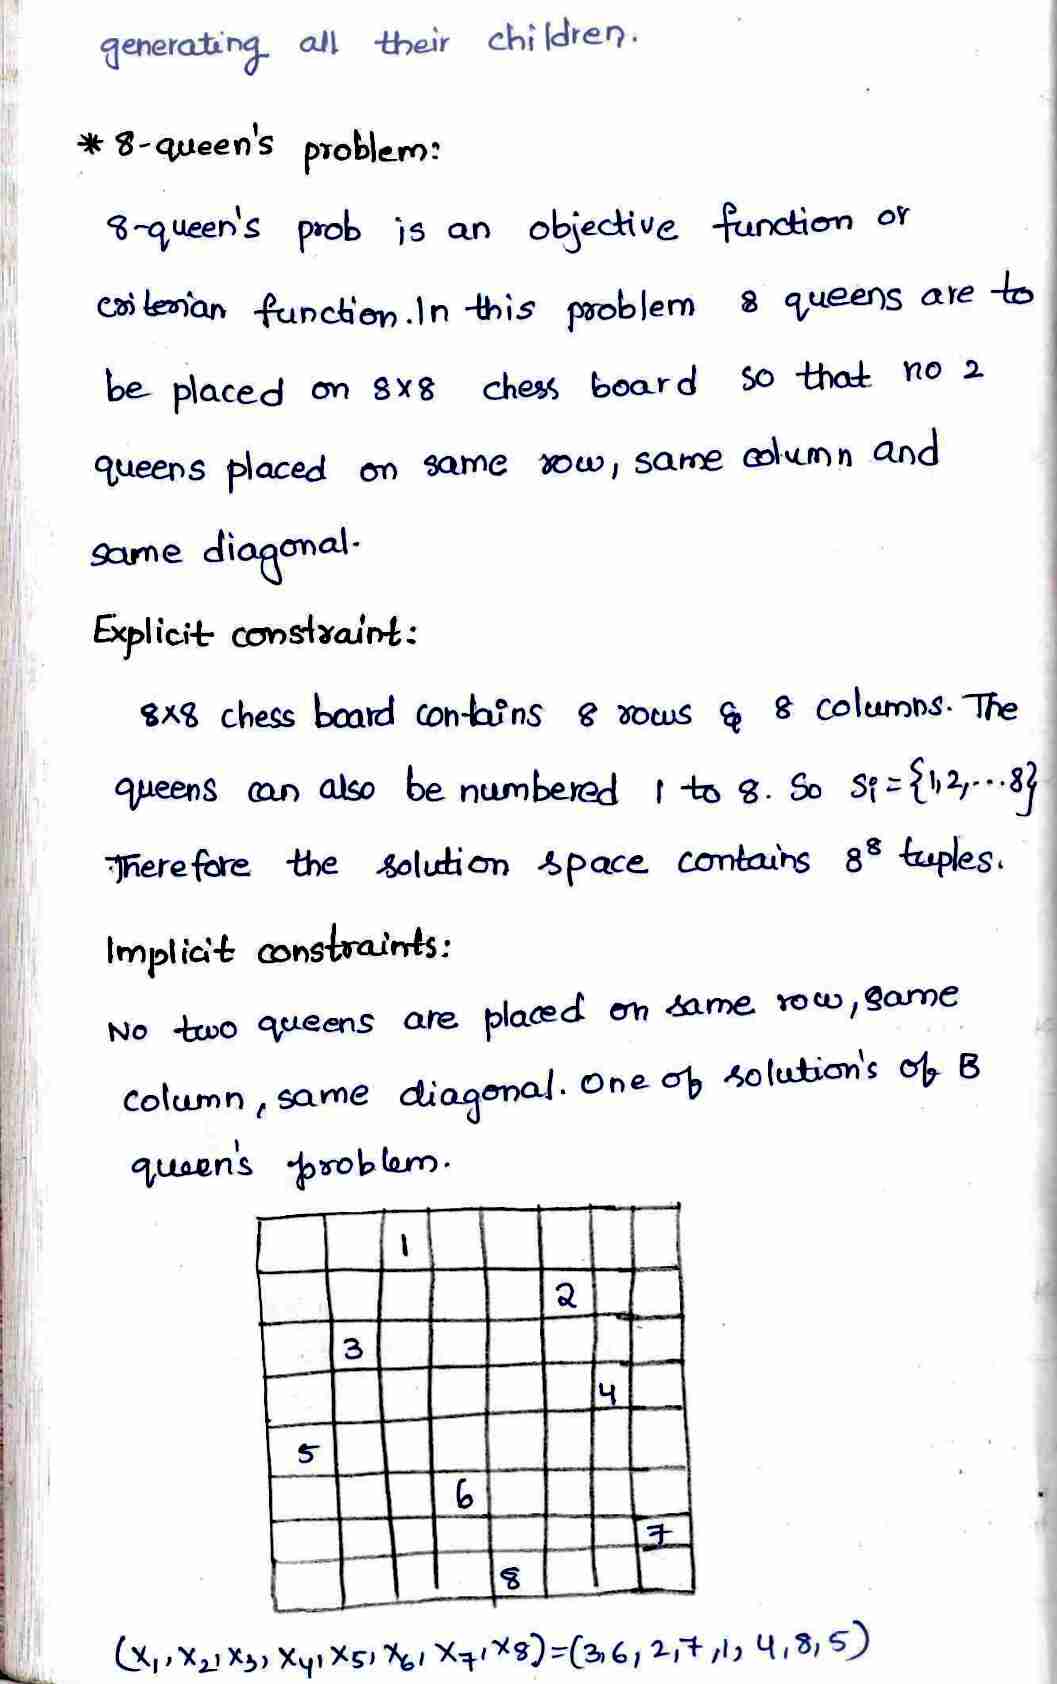 generating all their children.
* 8-queen's problem:
8-queen's prob is an objective function or
criterian function.In this problem 8 queens are to
be placed on 8x8 chess board so that no 2
queens placed on same row, same column and
same diagonal.
Explicit constraint:
8x8 chess board contains 8 rows & 8 columns. The
queens can also be numbered 1 to 8. So Si={1,2,...8}
Therefore the solution space contains 8⁸ tuples.
Implicit constraints:
No two queens are placed on same row, same
column, same diagonal. One of solution's of 8
queen's problem.
1
2
3
4
5
6
7
8
(x₁, x₂, x₃, x₄, x₅, x₆, x₇, x₈)=(3,6,2,7,1,4,8,5)